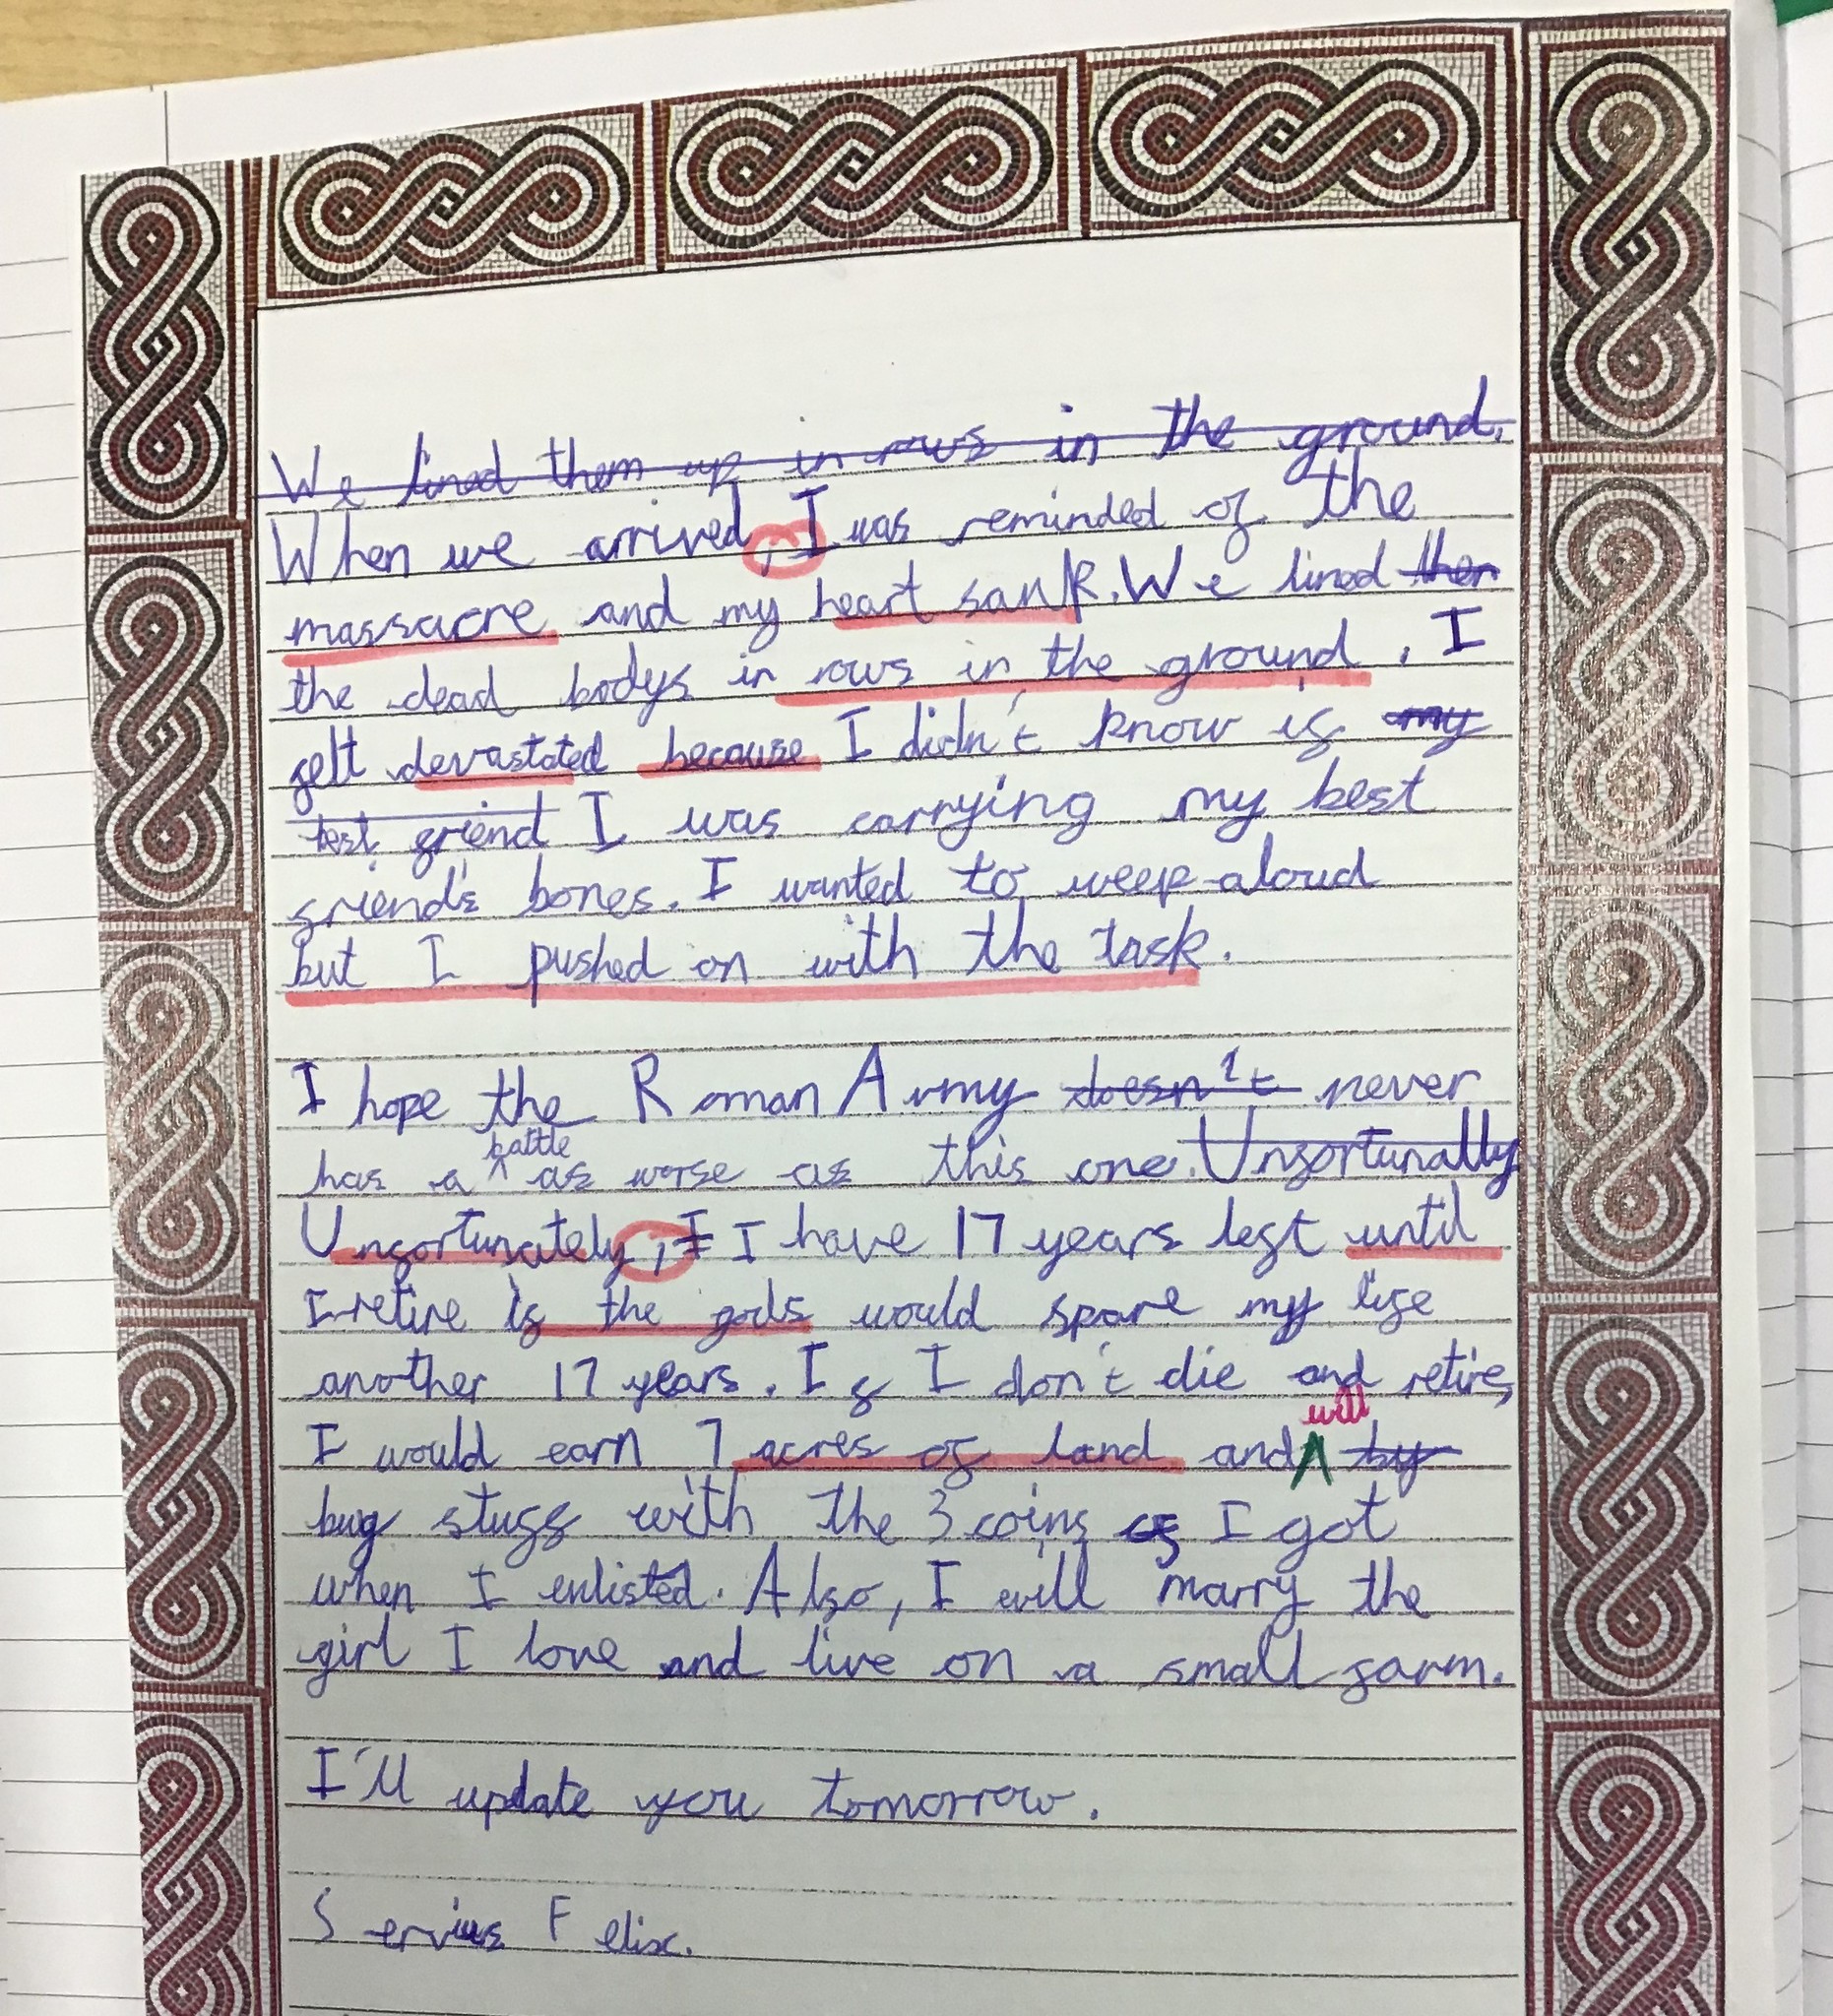 We lined them up in rows in the ground.
When we arrived, I was reminded of the
massacre and my heart sank. We lined then
the dead bodys in rows in the ground. I
felt devastated because I didn't know if my
best friend I was carrying my best
friend's bones. I wanted to weep aloud
but I pushed on with the task.
I hope the Roman Army doesn't never
battle
has a ^ as worse as this one. Unfortunatly
Unfortunately, I I have 17 years left until
I retire if the gods would spare my life
another 17 years. If I don't die and retire,
will
I would earn 7 acres of land and ^ by
buy stuff with the 3 coins of I got
when I enlisted. Also, I will marry the
girl I love and live on a small farm.
I'll update you tomorrow.
Servius Felix.